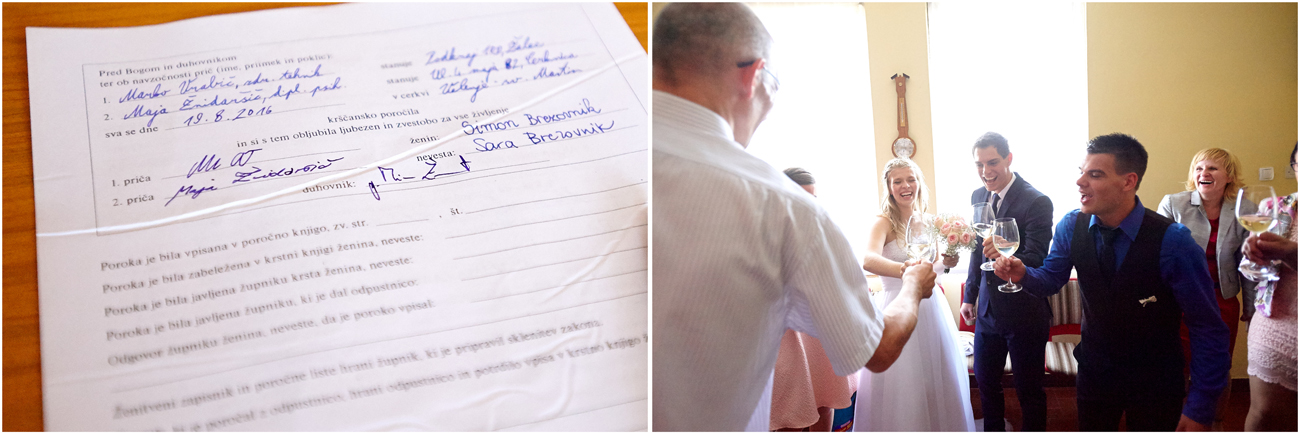 Pred Bogom in duhovnikom
ter ob navzočnosti prič (ime, priimek in poklic):
1. Marko Vrabič, sdr. tehnik stanuje Podkraj 122, Žalec
2. Maja Žnidaršič, dipl. psih. stanuje Ul. 4. maja 82, Cerknica
sva se dne 19.8.2016 v cerkvi Velenje - sv. Martin
krščansko poročila
in si s tem obljubila ljubezen in zvestobo za vse življenje
ženin: Simon Brezovnik
nevesta: Sara Brezovnik
1. priča
2. priča Maja Žnidaršič duhovnik:
Poroka je bila vpisana v poročno knjigo, zv. str. , št.
Poroka je bila zabeležena v krstni knjigi ženina, neveste:
Poroka je bila javljena župniku krsta ženina, neveste:
Poroka je bila javljena župniku, ki je dal odpustnico:
Odgovor župniku ženina, neveste, da je poroko vpisal:
Ženitveni zapisnik in poročne liste hrani župnik, ki je pripravil sklenitev zakona.
ki je poročal z odpustnico, hrani odpustnico in potrdilo vpisa v krstno knjigo